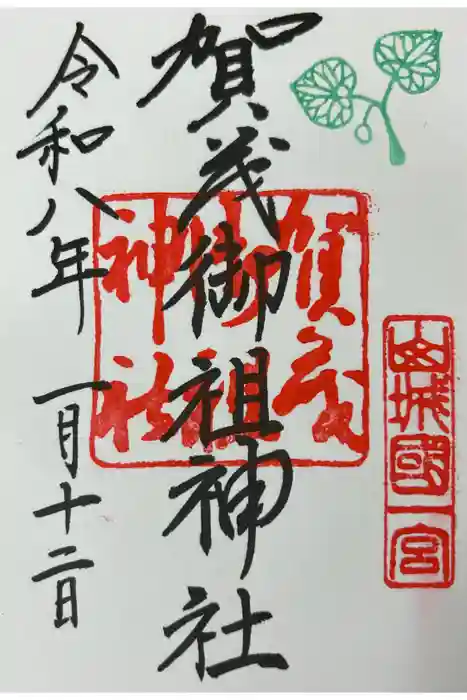 山城國一宮
賀茂御祖神社
賀茂御祖神社
令和八年一月十二日